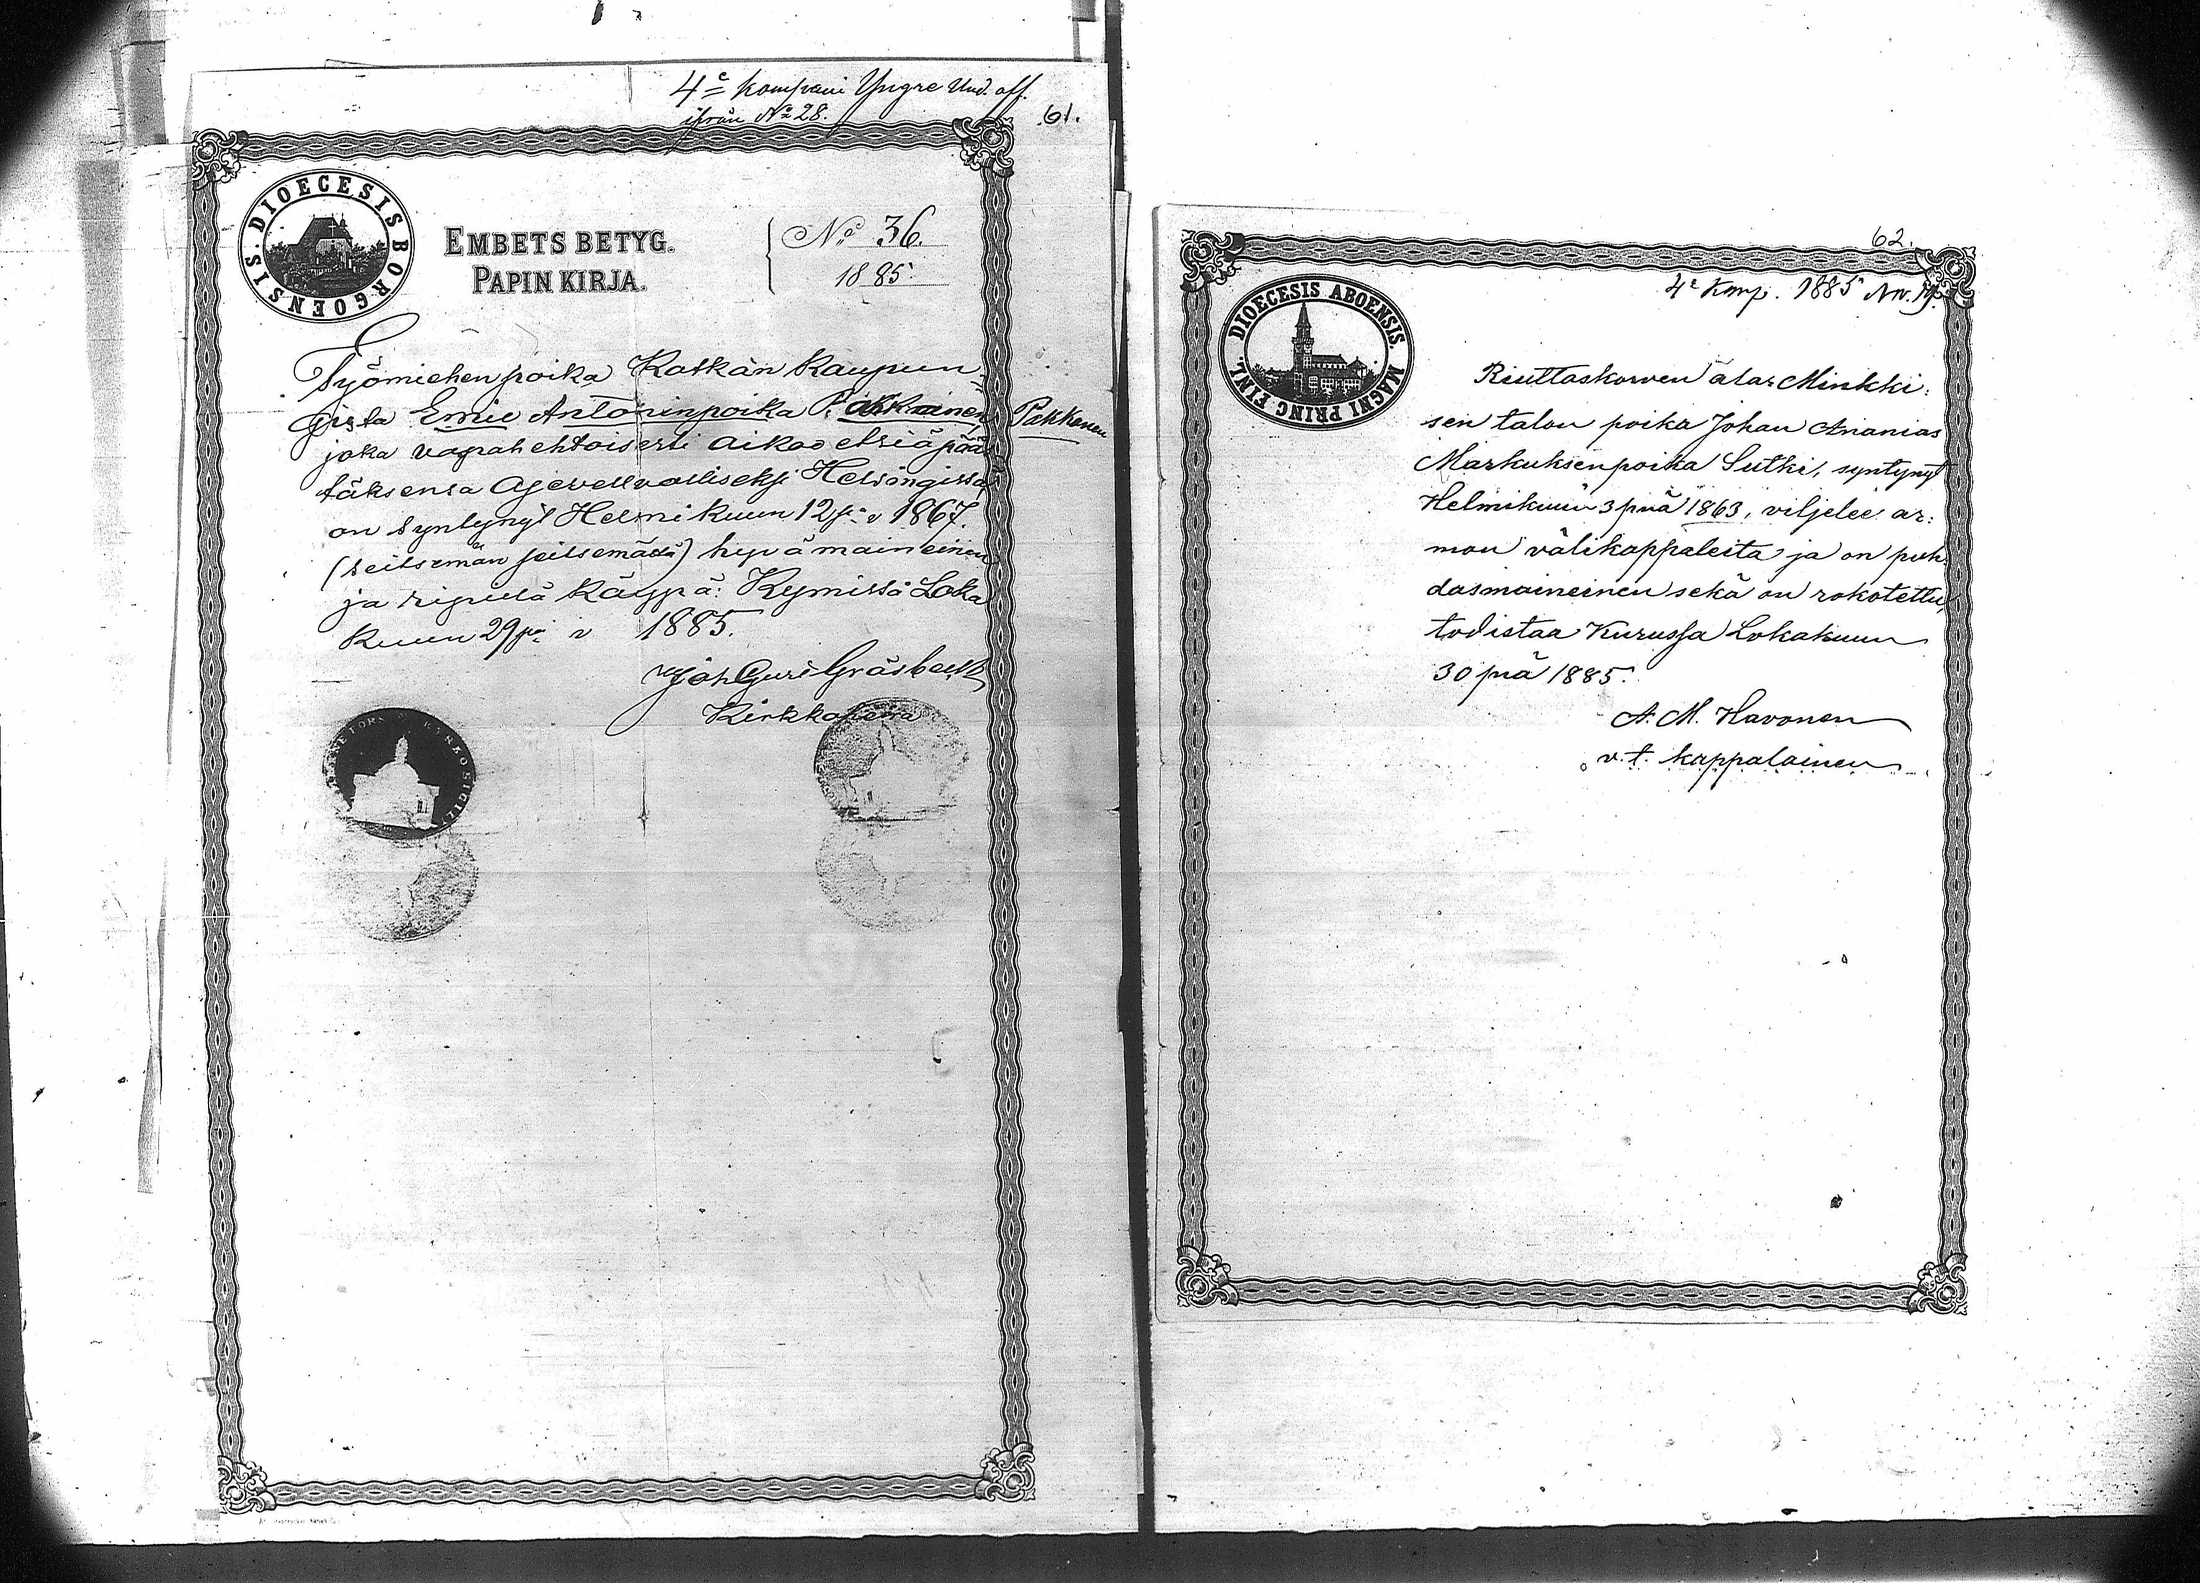 4e kompani Yngre Und. off.
ifrån No 28.
61.
DIOECESIS BORGOENSIS.
EMBETS BETYG.
PAPIN KIRJA.
No 36.
1885.
Työmiehen poika Kotkan Kaupun-
gista Emil Antoninpoika Pakkainen, Pakkanen
joka vapaehtoisesti aikoo etsiä pääs-
täksensä
on syntynyt Helmikuun 12 p:nä v 1867.
(seitsemän seitsemättä) hyvämaineinen
ja ripillä käypä: Kymissä Loka
Kuun 29 p:nä v 1885.
Gräsbeck
Kirkkoherra
KYRKO SIGILL
62.
4e Komp. 1885 No. 19.
DIOECESIS ABOENSIS. MAGNI PRINC FINL.
Riuttaskorven älar Minkki-
sen talon poika Johan Ananias
Markuksenpoika Sutki, syntynyt
Helmikuun 3 pnä 1863, viljelee ar-
mon välikappaleita ja on puh-
dasmaineinen sekä on rokotettu,
todistaa Kurussa Lokakuun
30 pnä 1885.
A. M. Havonen
v.t. kappalainen